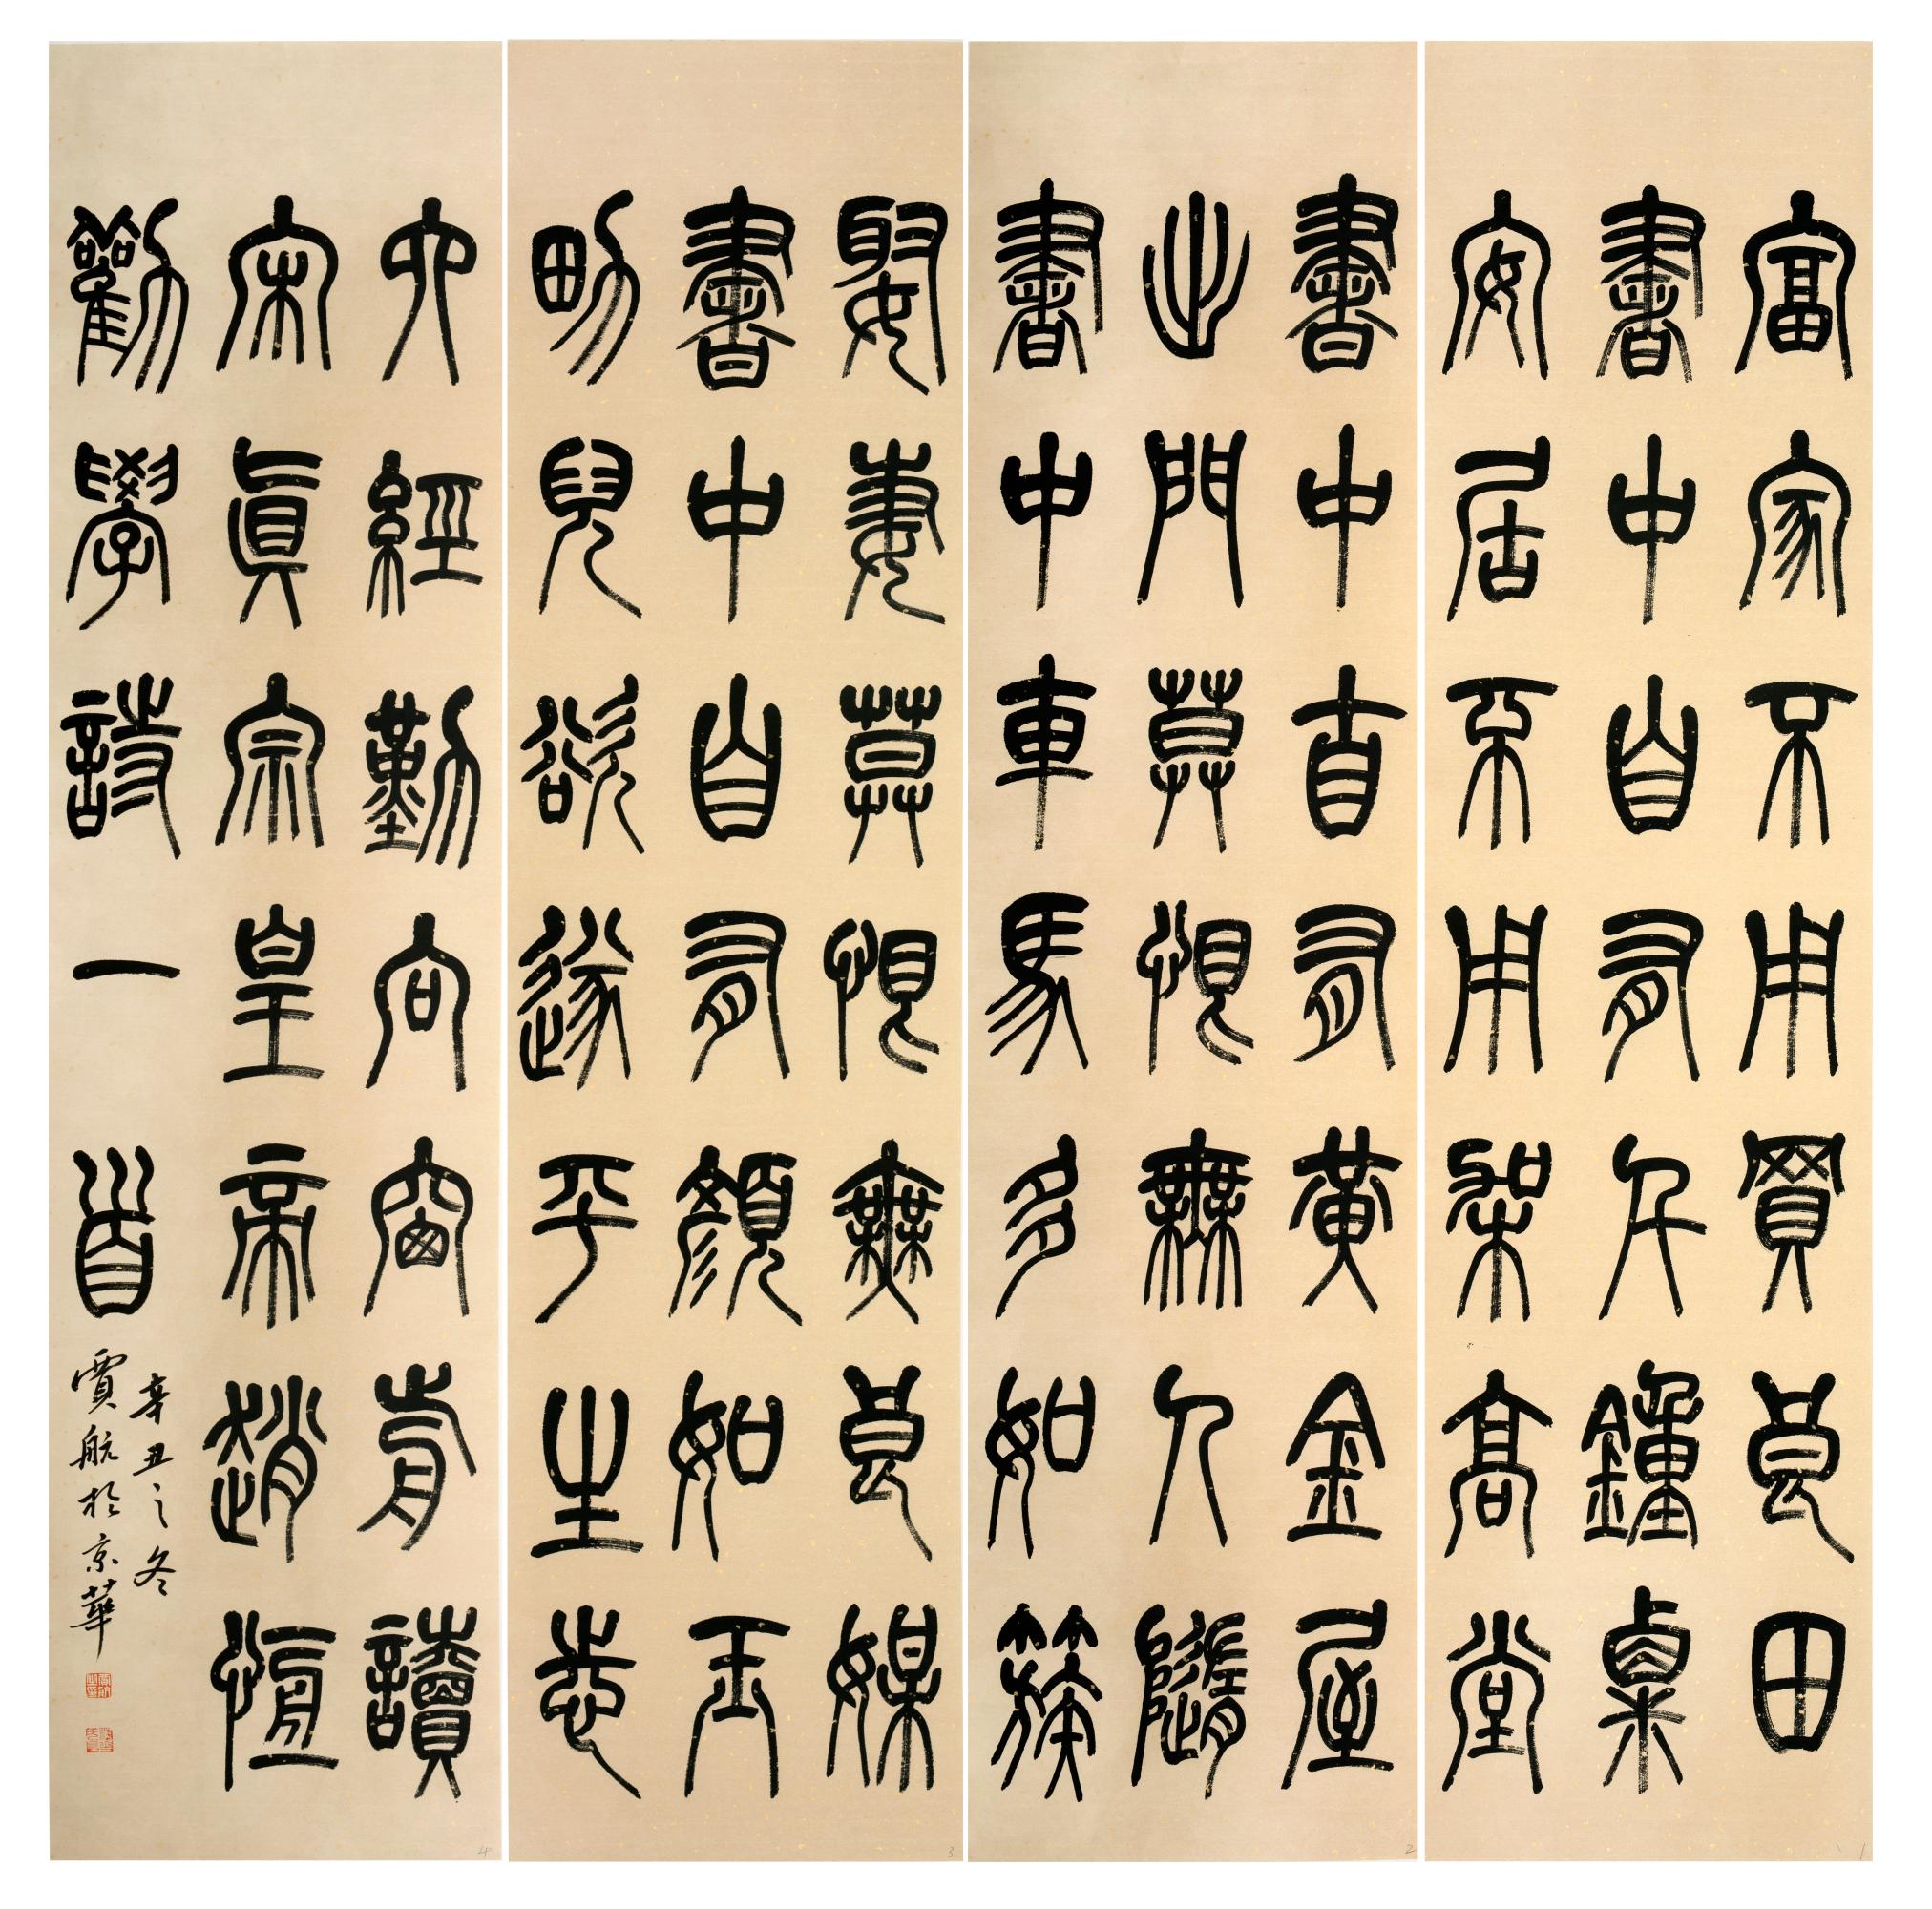 富家不用買良田
書中自有千鍾粟
安居不用架高堂
書中自有黃金屋
出門莫恨無人隨
書中車馬多如簇
娶妻莫恨無良媒
書中自有顏如玉
男兒欲遂平生志
六經勤向窗前讀
宋眞宗皇帝趙恆
勸學詩一首
辛丑之冬
賈航於京華